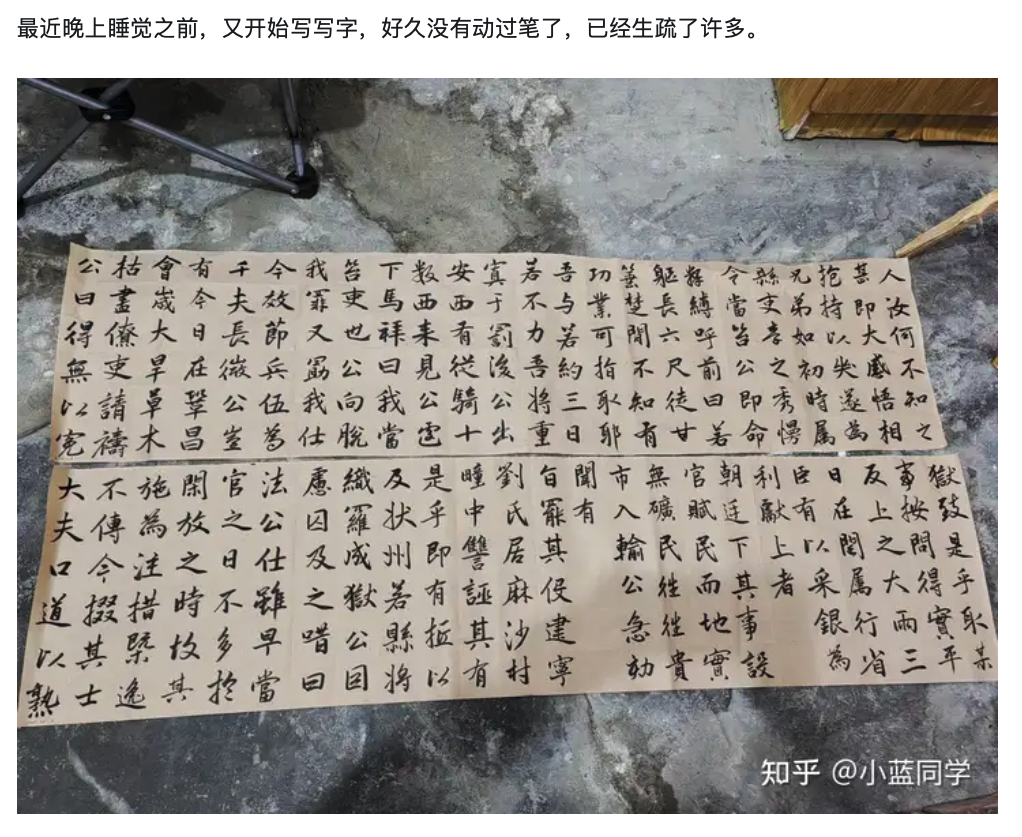 最近晚上睡觉之前，又开始写写字，好久没有动过笔了，已经生疏了许多。
人汝何不知之
甚即大感悟相
抱持以失遂為
兄弟如初時属
縣吏李之秀慢
令當笞公即命
縛呼前曰若
軀長六尺徒甘
箠楚聞不知有
功業可指取耶
吾与若約三日
若不力吾將重
寘于罰後公出
安西有從騎十
数西来見公
下馬拜曰我當
笞吏也公向脫
我罪又勖我仕
今效節兵伍為
千夫長微公豈
有今日在鞏昌
會歲大旱草木
枯盡僚吏請禱
公曰得無以冤
獄致是乎取某
事按問得實平
反上之大雨三
日在閩属行省
臣有以采銀為
利獻上者
朝廷下其事設
官賦民而地實
無礦民往往貴
市入輸公急劾
聞有
旨罷其侵建寧
劉氏居麻沙村
瞳中讐誣其有
是乎即有以
及状州若縣將
織羅成獄公因
慮囚及之唶曰
法公仕雖早當
官之日不多於
閑放之時故其
施為注措槩逸
不傳今掇其士
大夫口道以熟
知乎 @小蓝同学